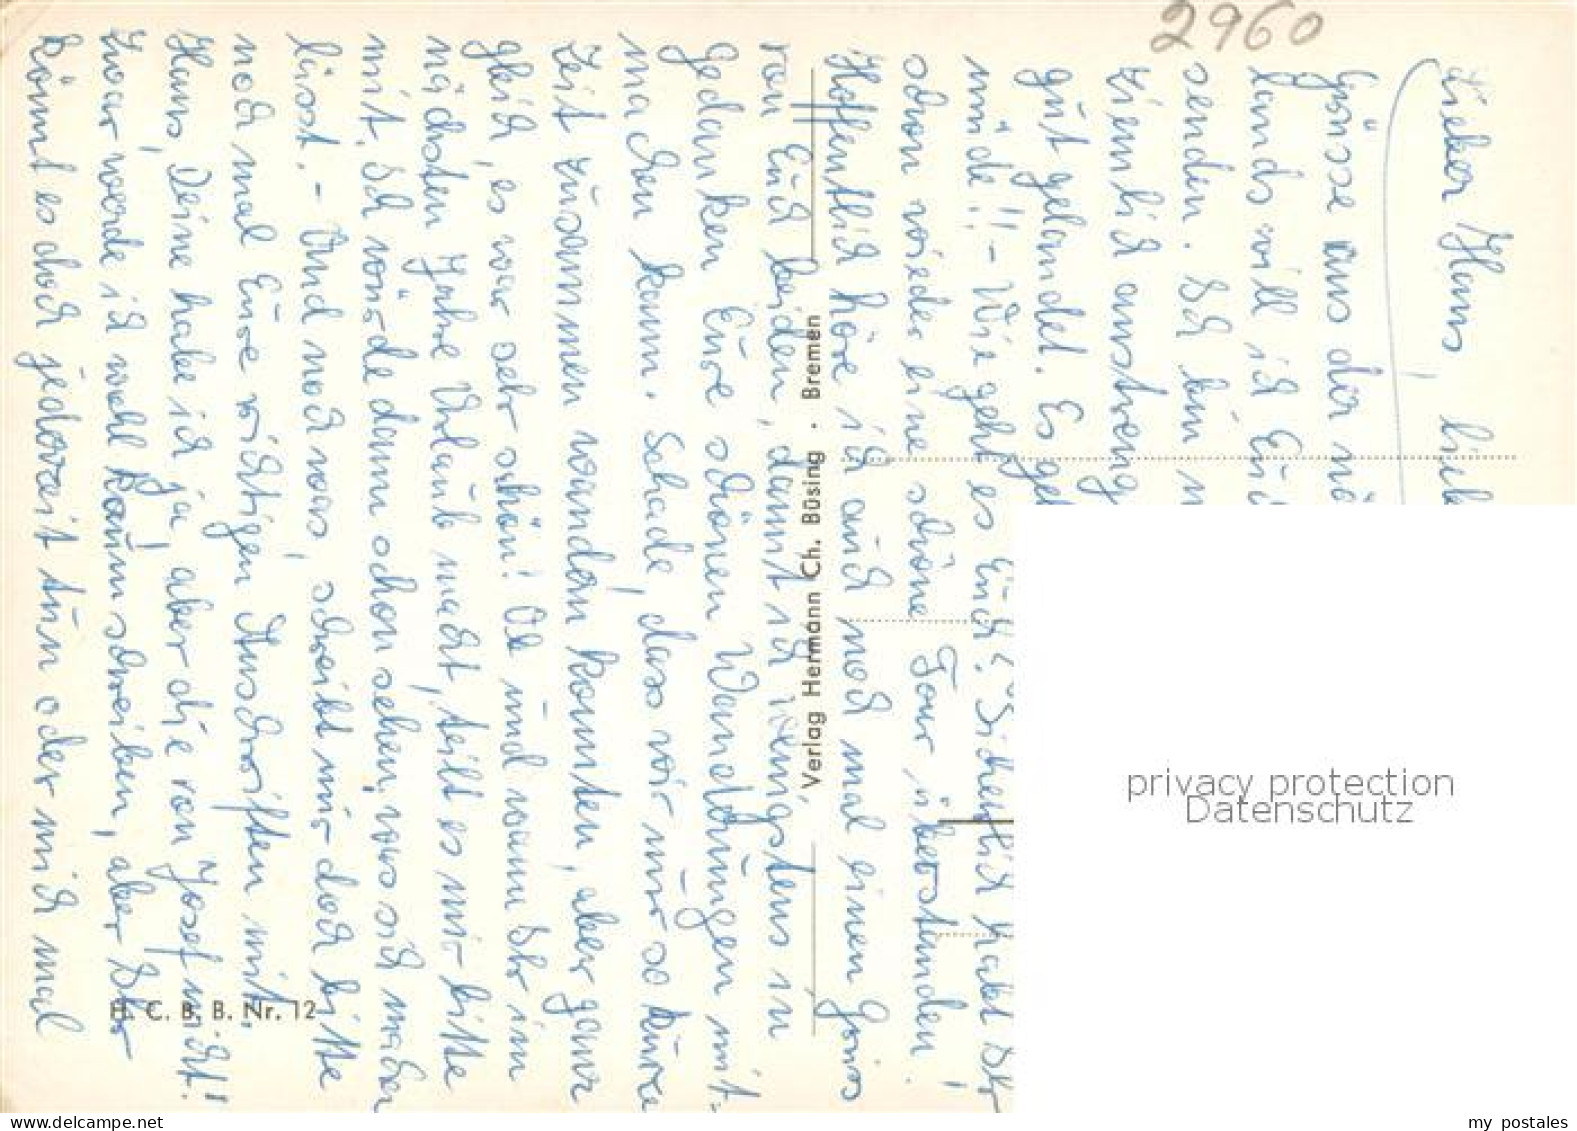 2960
Lieber Hans, lieb
Grüsse aus der nö
lands will ich Euc
senden. Ich bin n
ziemlich anstreng
gut gelandet. Es gef
müde!! - Wie geht es Euch? Sicherlich habt Ihr
schon wieder eine schöne Tour überstanden!
Hoffentlich höre ich auch noch mal einen Gruss
von Euch beiden, damit ich wenigstens in
Gedanken Eure schönen Wanderungen mit-
machen kann. Schade, dass wir nur so kurze
Zeit zusammen wandern konnten, aber ganz
gleich, es war sehr schön! Ob und wann Ihr im
nächsten Jahre Urlaub macht, teilt es mir bitte
mit. Ich würde dann schon sehen, was sich machen
lässt. - Und noch was, schreibt mir doch bitte
noch mal Eure richtigen Anschriften mit.
Hans, Deine habe ich ja, aber die von Josef nicht!!
Zwar werde ich wohl kaum schreiben, aber Ihr
könnt es doch jederzeit tun oder mich mal
Verlag Hermann Ch. Büsing · Bremen
H. C. B. B. Nr. 12
privacy protection
Datenschutz
my postales